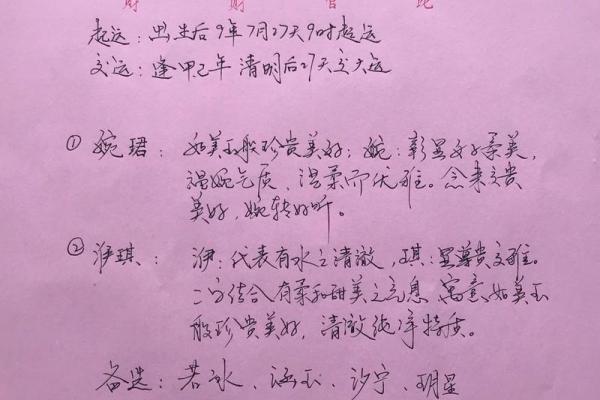 财 财 官 比
起运：出生后9年7月27天9时起运
交运：逢甲己年清明后27天交大运
①婉珺：如美玉般珍贵美好；婉：彰显女子柔美，
温婉气质、温柔而优雅。念来文贵
美好，婉转好听。
②洢琪：洢：代表有水之清澈，琪：显尊贵文雅。
二字结合有柔和甜美之气息，寓意如美玉
般珍贵美好，清澈纯净特质。
备选：若冰、涵玉、汐宁、玥星